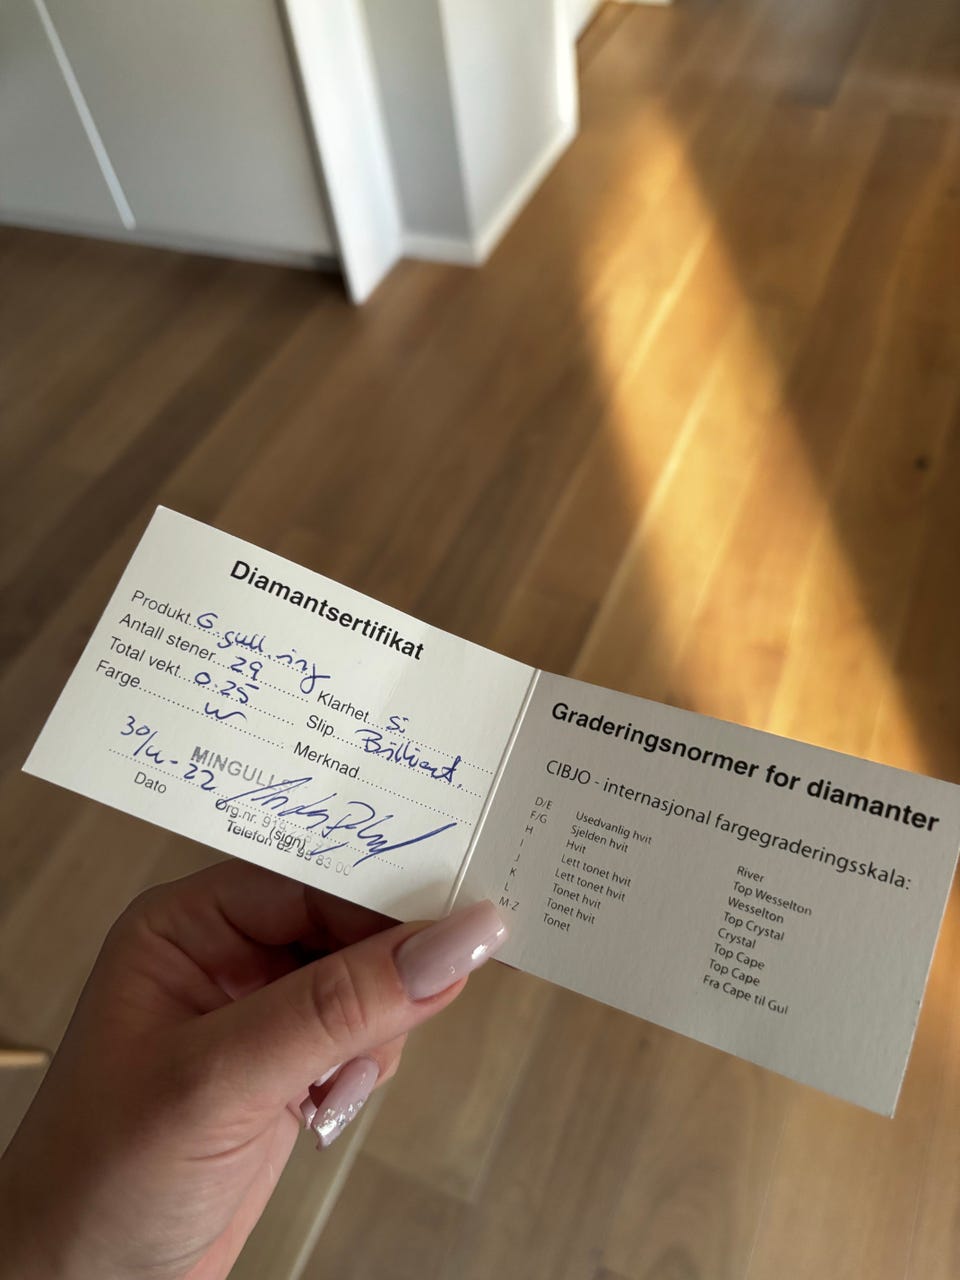 Diamantsertifikat
Produkt G gull ring
Antall stener 29 Klarhet Si
Total vekt 0.25 Slip Brilliant
Farge W Merknad
30/4-22
MINGULL
Org.nr.
Dato (sign)
Telefon 62 95 83 00
Graderingsnormer for diamanter
CIBJO - internasjonal fargegraderingsskala:
D/E Usedvanlig hvit River
F/G Sjelden hvit Top Wesselton
H Hvit Wesselton
I Lett tonet hvit Top Crystal
J Lett tonet hvit Crystal
K Tonet hvit Top Cape
L Tonet hvit Top Cape
M-Z Tonet Fra Cape til Gul